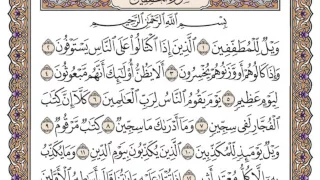 بِسْمِ اللَّهِ الرَّحْمَٰنِ الرَّحِيمِ
وَيْلٌ لِّلْمُطَفِّفِينَ ١ الَّذِينَ إِذَا اكْتَالُوا عَلَى النَّاسِ يَسْتَوْفُونَ ٢
وَإِذَا كَالُوهُمْ أَو وَّزَنُوهُمْ يُخْسِرُونَ ٣ أَلَا يَظُنُّ أُولَٰئِكَ أَنَّهُم مَّبْعُوثُونَ ٤
لِيَوْمٍ عَظِيمٍ ٥ يَوْمَ يَقُومُ النَّاسُ لِرَبِّ الْعَالَمِينَ ٦ كَلَّا إِنَّ كِتَابَ
الْفُجَّارِ لَفِي سِجِّينٍ ٧ وَمَا أَدْرَاكَ مَا سِجِّينٌ ٨ كِتَابٌ مَّرْقُومٌ ٩
وَيْلٌ يَوْمَئِذٍ لِّلْمُكَذِّبِينَ ١٠ الَّذِينَ يُكَذِّبُونَ بِيَوْمِ الدِّينِ ١١ وَمَا يُكَذِّبُ